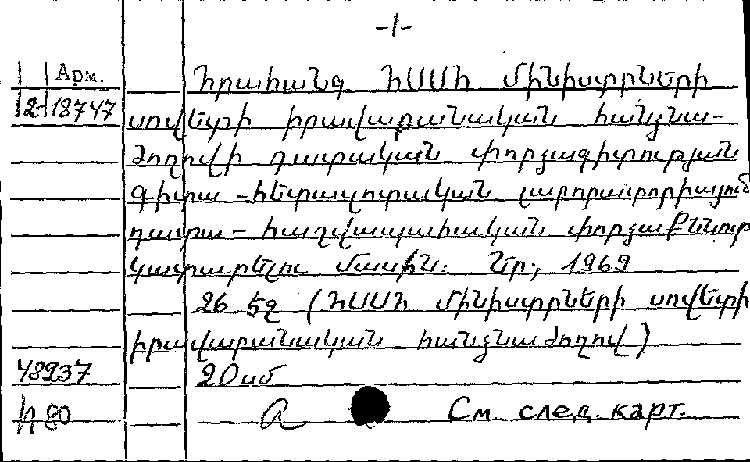 -1-
Арм.
Հրահանգ ՀՍՍՀ Մինիստրների
12-18747
սովետի իրավաբանական հանձնա-
ժողովի դատական փորձագիտության
գիտա-հետազոտական լաբորատորիայում
դատա-հաշվապահական փորձաքննութ
կատարելու մասին. Եր., 1969
26 էջ (ՀՍՍՀ Մինիստրների սովետի
իրավաբանական հանձնաժողով)
48937
20 սմ
п 80
а
См. след. карт.